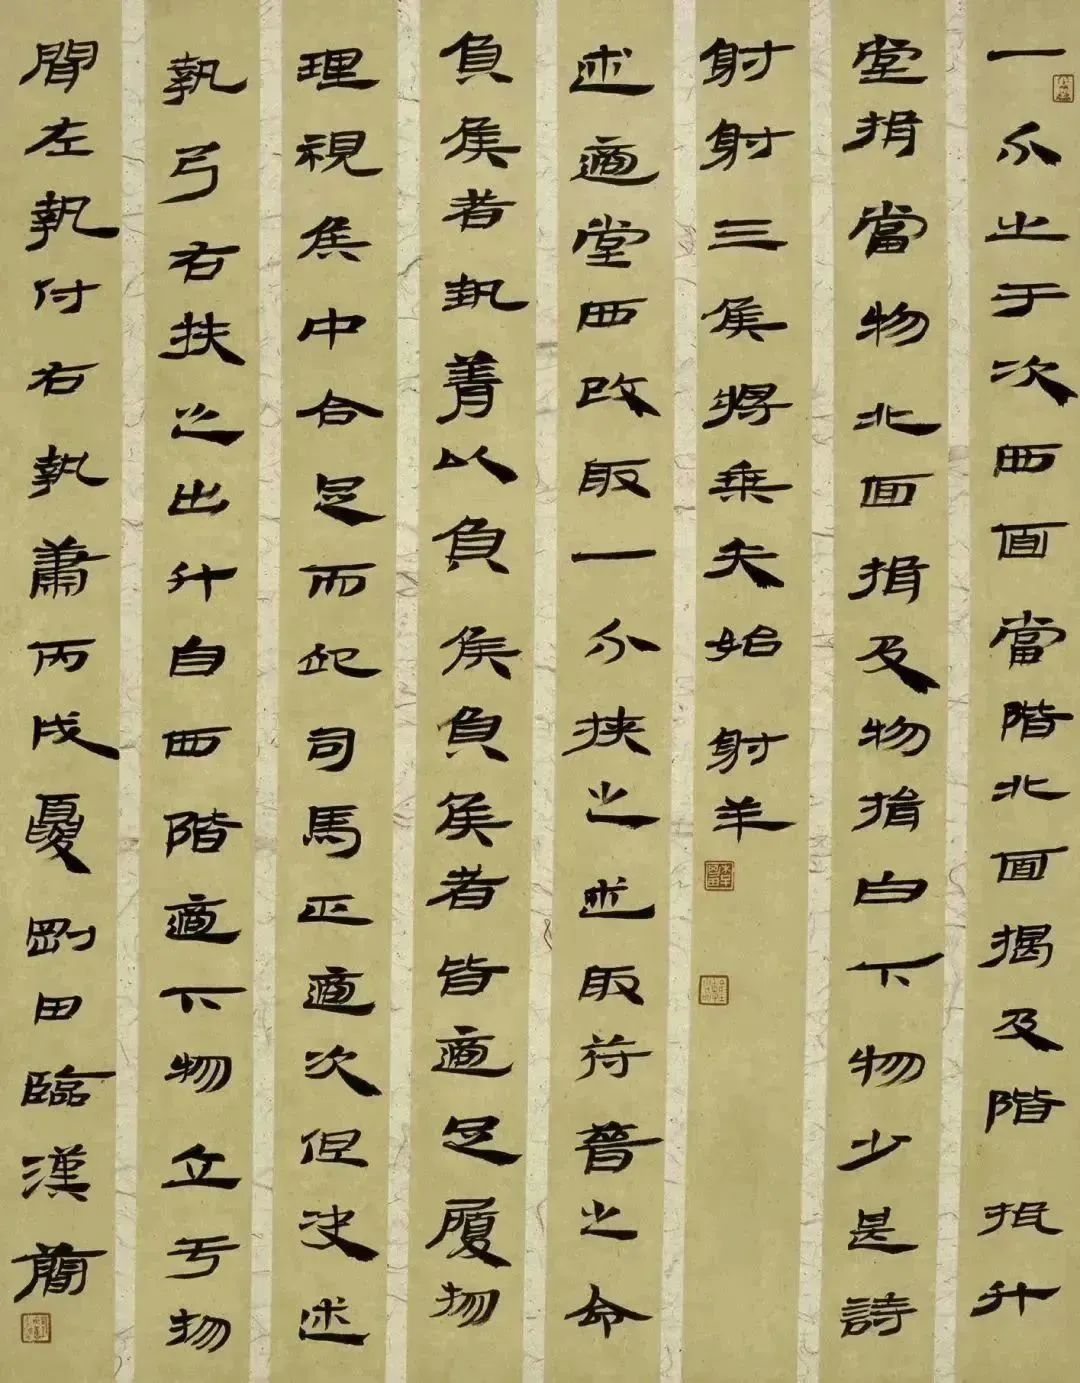 一个止于次西面當階北面揖及階揖升
堂揖當物北面揖及物揖白下物少是詩
射射三侯將乘矢始射羊
述適堂西改取一个挾之述取符晉之命
負侯者執菁以負侯負侯者皆適足履物
理視侯中合足而起司馬正適次但決述
執弓右扶之出升自西階適下物立亏物
間左執付右執蕭丙戌夏剛田臨漢簡